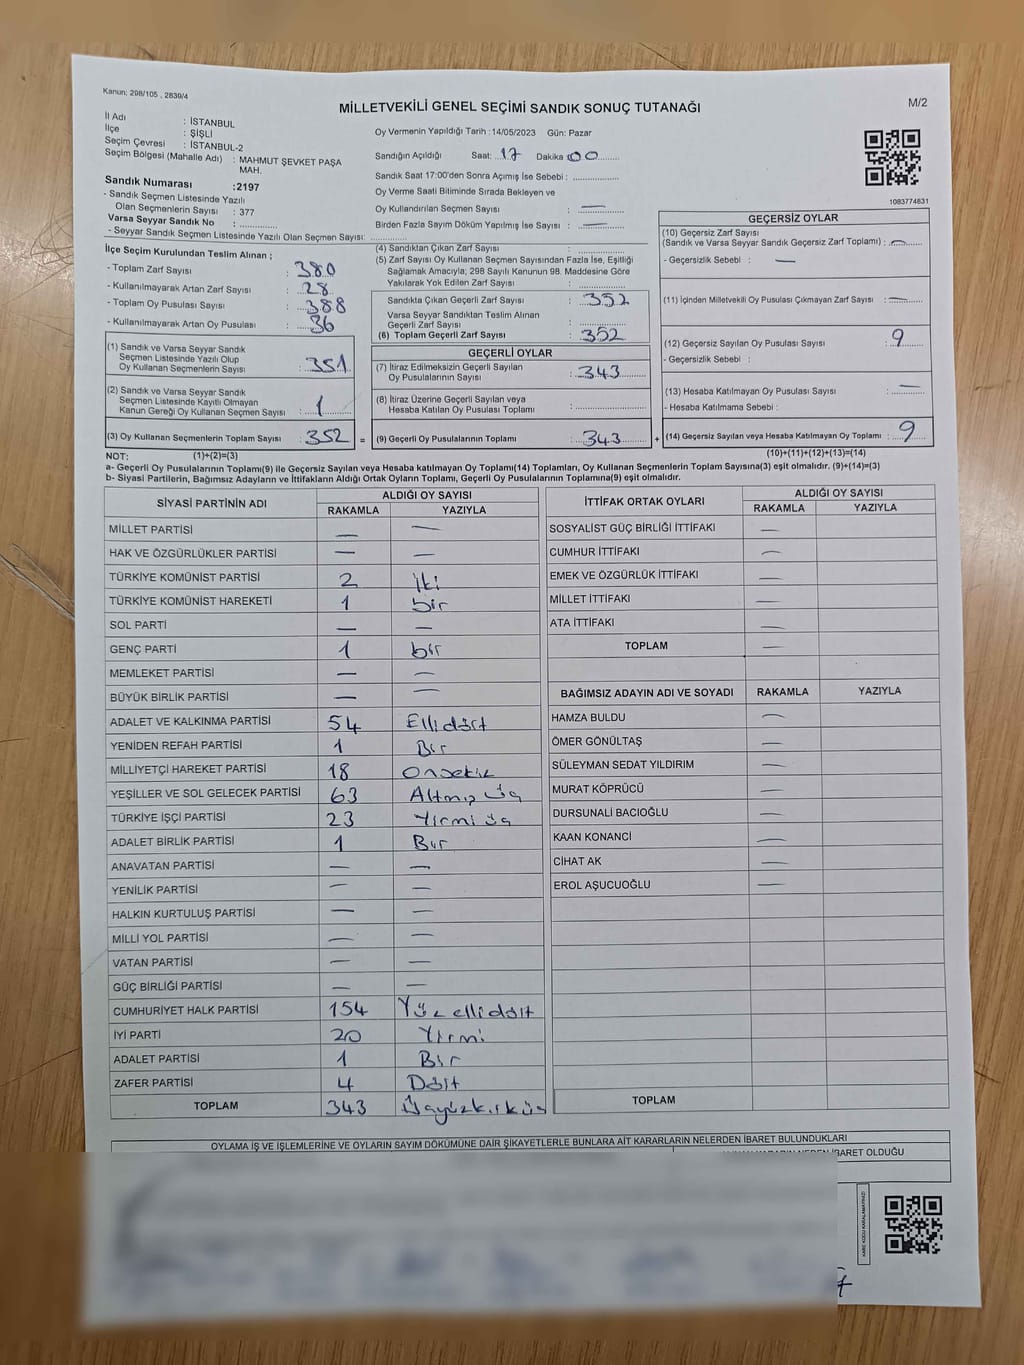 Kanun: 298/105 , 2839/4
MİLLETVEKİLİ GENEL SEÇİMİ SANDIK SONUÇ TUTANAĞI
M/2
İl Adı : İSTANBUL
İlçe : ŞİŞLİ
Seçim Çevresi : İSTANBUL-2
Seçim Bölgesi (Mahalle Adı) : MAHMUT ŞEVKET PAŞA MAH.
Sandık Numarası :2197
- Sandık Seçmen Listesinde Yazılı
Olan Seçmenlerin Sayısı : 377
Varsa Seyyar Sandık No : ..............
- Seyyar Sandık Seçmen Listesinde Yazılı Olan Seçmen Sayısı: ..............
Oy Vermenin Yapıldığı Tarih :14/05/2023 Gün: Pazar
Sandığın Açıldığı Saat: 17 Dakika 00
Sandık Saat 17:00'den Sonra Açılmış İse Sebebi : ..............
Oy Verme Saati Bitiminde Sırada Bekleyen ve
Oy Kullandırılan Seçmen Sayısı : —
Birden Fazla Sayım Döküm Yapılmış İse Sayısı : —
1083774831
İlçe Seçim Kurulundan Teslim Alınan ;
- Toplam Zarf Sayısı : 380
- Kullanılmayarak Artan Zarf Sayısı : 28
- Toplam Oy Pusulası Sayısı : 388
- Kullanılmayarak Artan Oy Pusulası : 36
(1) Sandık ve Varsa Seyyar Sandık
Seçmen Listesinde Yazılı Olup
Oy Kullanan Seçmenlerin Sayısı : 351
(2) Sandık ve Varsa Seyyar Sandık
Seçmen Listesinde Kayıtlı Olmayan
Kanun Gereği Oy Kullanan Seçmen Sayısı : 1
(3) Oy Kullanan Seçmenlerin Toplam Sayısı : 352 =
(4) Sandıktan Çıkan Zarf Sayısı : ..............
(5) Zarf Sayısı Oy Kullanan Seçmen Sayısından Fazla İse, Eşitliği
Sağlamak Amacıyla; 298 Sayılı Kanunun 98. Maddesine Göre
Yakılarak Yok Edilen Zarf Sayısı : ..............
Sandıkta Çıkan Geçerli Zarf Sayısı : 352
Varsa Seyyar Sandıktan Teslim Alınan
Geçerli Zarf Sayısı : ..............
(6) Toplam Geçerli Zarf Sayısı : 352
GEÇERLİ OYLAR
(7) İtiraz Edilmeksizin Geçerli Sayılan
Oy Pusulalarının Sayısı : 343
(8) İtiraz Üzerine Geçerli Sayılan veya
Hesaba Katılan Oy Pusulası Toplamı : ..............
(9) Geçerli Oy Pusulalarının Toplamı : 343 +
GEÇERSİZ OYLAR
(10) Geçersiz Zarf Sayısı
(Sandık ve Varsa Seyyar Sandık Geçersiz Zarf Toplamı) : —
- Geçersizlik Sebebi : —
(11) İçinden Milletvekili Oy Pusulası Çıkmayan Zarf Sayısı : —
(12) Geçersiz Sayılan Oy Pusulası Sayısı : 9
- Geçersizlik Sebebi :
(13) Hesaba Katılmayan Oy Pusulası Sayısı : —
- Hesaba Katılmama Sebebi :
(14) Geçersiz Sayılan veya Hesaba Katılmayan Oy Toplamı : 9
NOT: (1)+(2)=(3) (10)+(11)+(12)+(13)=(14)
a- Geçerli Oy Pusulalarının Toplamı(9) ile Geçersiz Sayılan veya Hesaba katılmayan Oy Toplamı(14) Toplamları, Oy Kullanan Seçmenlerin Toplam Sayısına(3) eşit olmalıdır. (9)+(14)=(3)
b- Siyasi Partilerin, Bağımsız Adayların ve İttifakların Aldığı Ortak Oyların Toplamı, Geçerli Oy Pusulalarının Toplamına(9) eşit olmalıdır.
SİYASİ PARTİNİN ADI ALDIĞI OY SAYISI
RAKAMLA YAZIYLA
MİLLET PARTİSİ — —
HAK VE ÖZGÜRLÜKLER PARTİSİ — —
TÜRKİYE KOMÜNİST PARTİSİ 2 İki
TÜRKİYE KOMÜNİST HAREKETİ 1 bir
SOL PARTİ — —
GENÇ PARTİ 1 bir
MEMLEKET PARTİSİ — —
BÜYÜK BİRLİK PARTİSİ — —
ADALET VE KALKINMA PARTİSİ 54 Ellidört
YENİDEN REFAH PARTİSİ 1 Bir
MİLLİYETÇİ HAREKET PARTİSİ 18 Onsekiz
YEŞİLLER VE SOL GELECEK PARTİSİ 63 Altmış üç
TÜRKİYE İŞÇİ PARTİSİ 23 Yirmi üç
ADALET BİRLİK PARTİSİ 1 Bir
ANAVATAN PARTİSİ — —
YENİLİK PARTİSİ — —
HALKIN KURTULUŞ PARTİSİ — —
MİLLİ YOL PARTİSİ — —
VATAN PARTİSİ — —
GÜÇ BİRLİĞİ PARTİSİ — —
CUMHURİYET HALK PARTİSİ 154 Yüz ellidört
İYİ PARTİ 20 Yirmi
ADALET PARTİSİ 1 Bir
ZAFER PARTİSİ 4 Dört
TOPLAM 343 Üçyüzkırküç
İTTİFAK ORTAK OYLARI ALDIĞI OY SAYISI
RAKAMLA YAZIYLA
SOSYALİST GÜÇ BİRLİĞİ İTTİFAKI —
CUMHUR İTTİFAKI —
EMEK VE ÖZGÜRLÜK İTTİFAKI —
MİLLET İTTİFAKI —
ATA İTTİFAKI —
TOPLAM —
BAĞIMSIZ ADAYIN ADI VE SOYADI RAKAMLA YAZIYLA
HAMZA BULDU —
ÖMER GÖNÜLTAŞ —
SÜLEYMAN SEDAT YILDIRIM —
MURAT KÖPRÜCÜ —
DURSUNALİ BACIOĞLU —
KAAN KONANCİ —
CİHAT AK —
EROL AŞUCUOĞLU —
TOPLAM
OYLAMA İŞ VE İŞLEMLERİNE VE OYLARIN SAYIM DÖKÜMÜNE DAİR ŞİKAYETLERLE BUNLARA AİT KARARLARIN NELERDEN İBARET BULUNDUKLARI
İBARET OLDUĞU
KARE KODU KARALAMAYINIZ!